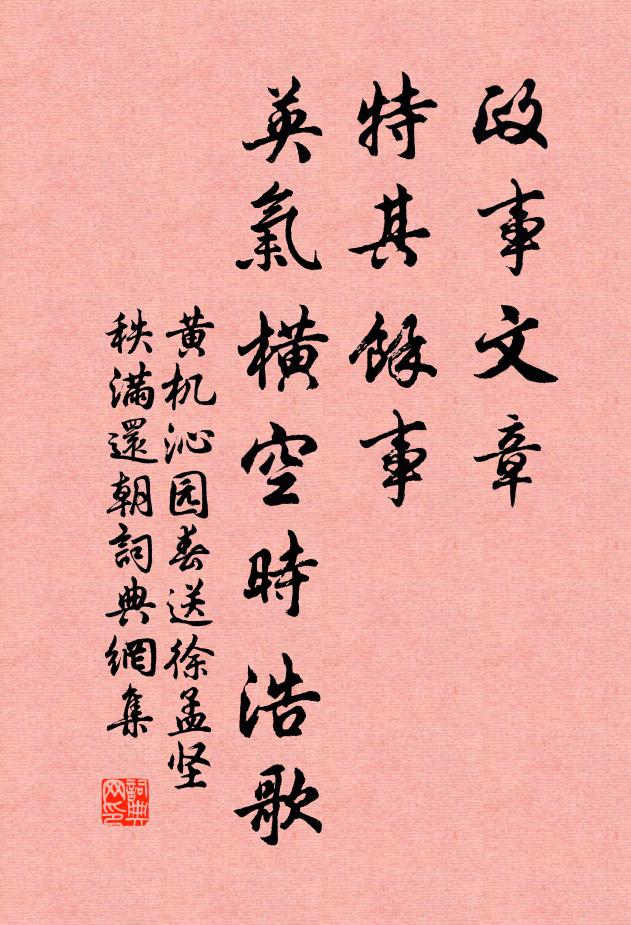 政事文章
特其餘事
英氣橫空時浩歌
黄机沁园春送徐孟坚
秩滿還朝詞典網集
詞典网印